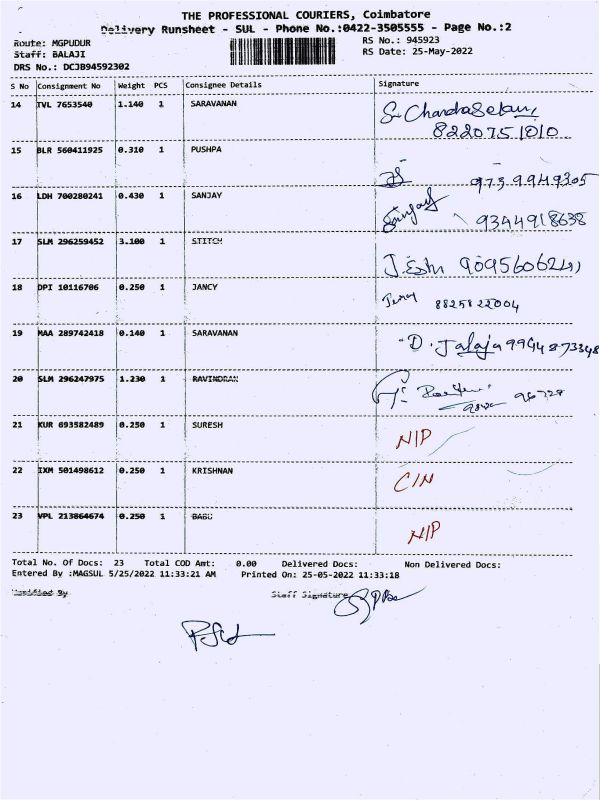 THE PROFESSIONAL COURIERS, Coimbatore
Delivery Runsheet - SUL - Phone No.:0422-3505555 - Page No.:2
Route: MGPUDUR RS No.: 945923
Staff: BALAJI RS Date: 25-May-2022
DRS No.: DCJB94592302
S No Consignment No Weight PCS Consignee Details Signature
14 TVL 7653540 1.140 1 SARAVANAN
8220751010
15 BLR 560411925 0.310 1 PUSHPA
9739949305
16 LDH 700280241 0.430 1 SANJAY Sanjay
9344918638
17 SLM 296259452 3.100 1 STITCH
18 DPI 10116706 0.250 1 JANCY
8825822004
19 MAA 289742418 0.140 1 SARAVANAN
D. Jalaja 9944873348
20 SLM 296247975 1.230 1 RAVINDRAN
21 KUR 693582489 0.250 1 SURESH N/P
22 IXM 501498612 0.250 1 KRISHNAN C/N
23 VPL 213864674 0.250 1 BABU N/P
Total No. Of Docs: 23 Total COD Amt: 0.00 Delivered Docs: Non Delivered Docs:
Entered By :MAGSUL 5/25/2022 11:33:21 AM Printed On: 25-05-2022 11:33:18
Verified By Staff Signature